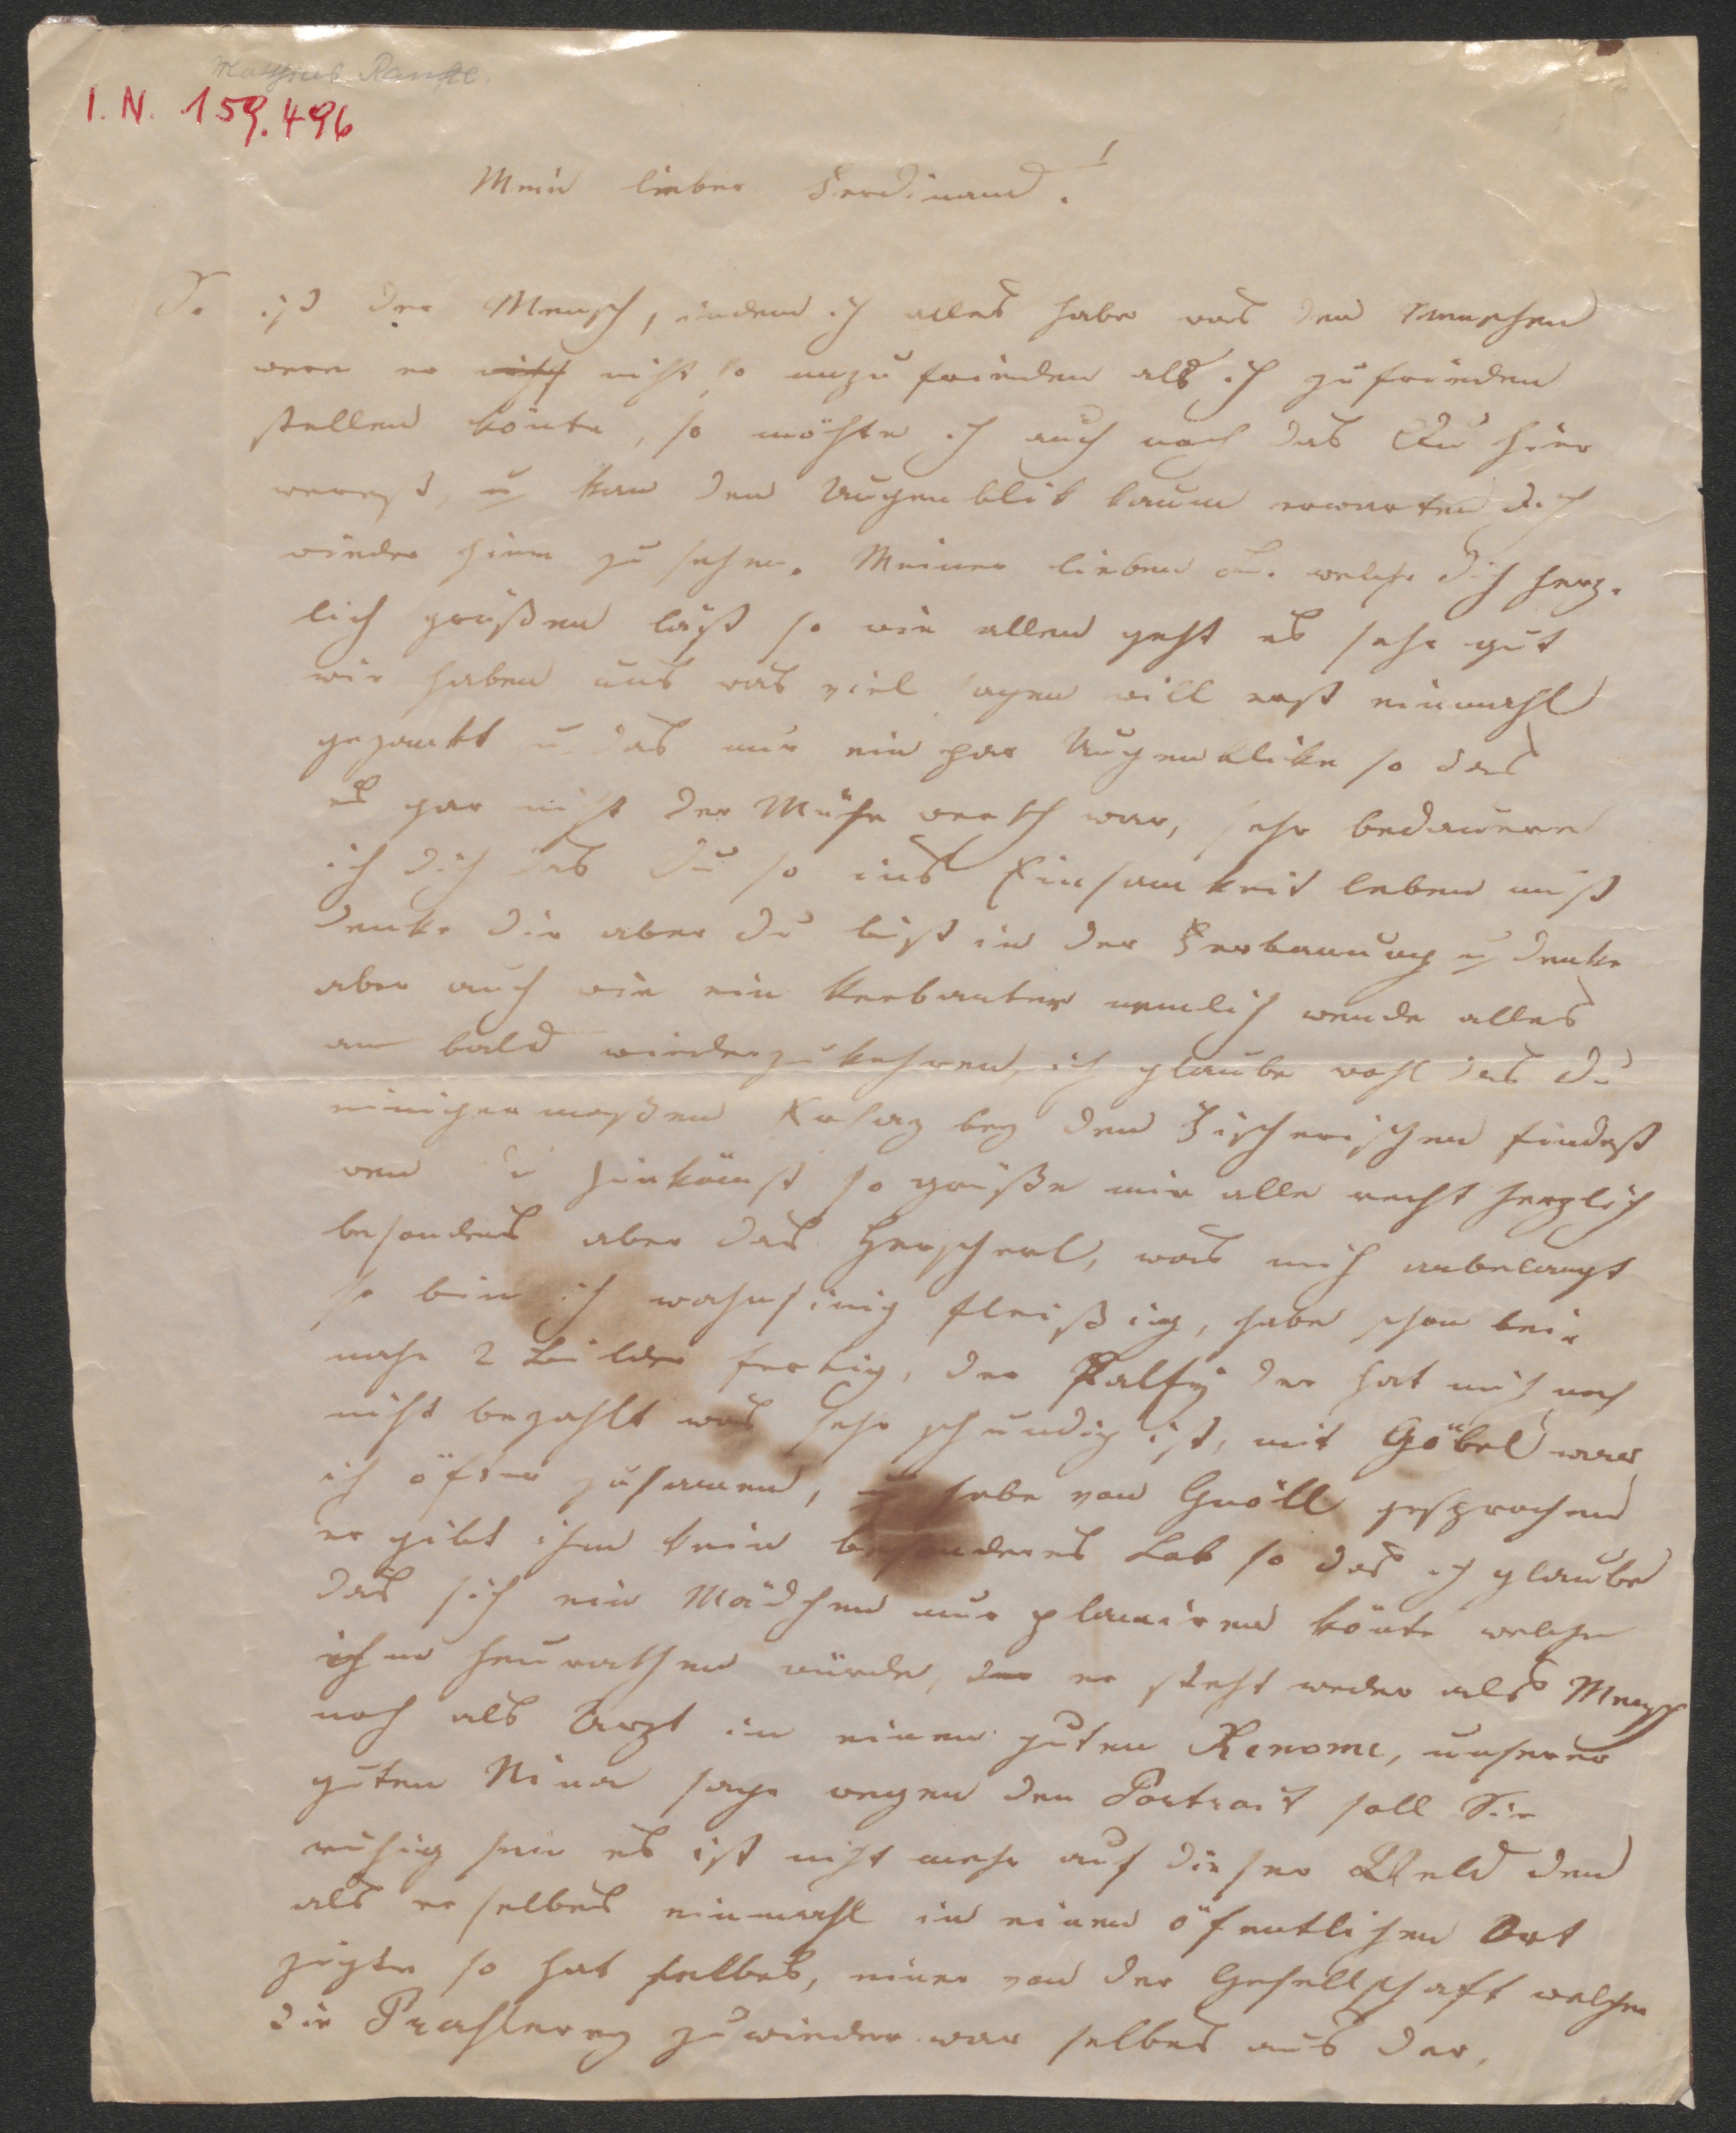 Mathias Ranftl.
I. N. 159.496
Mein lieber Ferdinand!
So ist der Mensch, indem ich alles habe was den Menschen
wen er nicht so unzufrieden als ich zufrieden
stellen könte, so möchte ich auch noch das Du hier
werest, u kan den Augenblik kaum erwarten dich
wieder hier zu sehen. Meiner lieben welche dich herz-
lich grüßen läßt so wie allen geht es sehr gut
wir haben uns was viel sagen will erst einmahl
gezankt u das nur ein par Augenblike so das
es gar nicht der Mühe werth war, sehr bedauere
ich dich das Du so ins Einsamkeit leben must
denke dir aber du bist in der Verbanung u denke
aber auch wie ein Verbanter nemlich wende alles
an bald wiederzukehren, ich glaube wohl das du
einigermaßen Ersaz bey den Fischerischen findest
wen du hinkömst so grüße mir alle recht herzlich
besonders aber das Herscherl, was mich anbelangt
so bin ich wahnsinig fleißig, habe schon bei-
nahe 2 Bilder fertig, der Palfy der hat mich noch
nicht bezahlt was sehr schundig ist, mit Göbel war
ich öfter zusamen, u habe von Gnöll gesprochen
er gibt ihm kein besonderes Lob so das ich glaube
das sich ein Mädchen nur plamiren könte welche
ihm heurathen würde, den er steht weder als Mensch
noch als Arzt in einen guten Renome, unserer
guten Nina sage wegen den Portrait soll Sie
ruhig sein es ist nicht mehr auf dieser Weld den
als er selbes einmahl in einen öfentlichen Ort
zeigte so hat selbes, einer von der Gesellschaft welchen
die Prahlerey zuwieder war selbes aus der